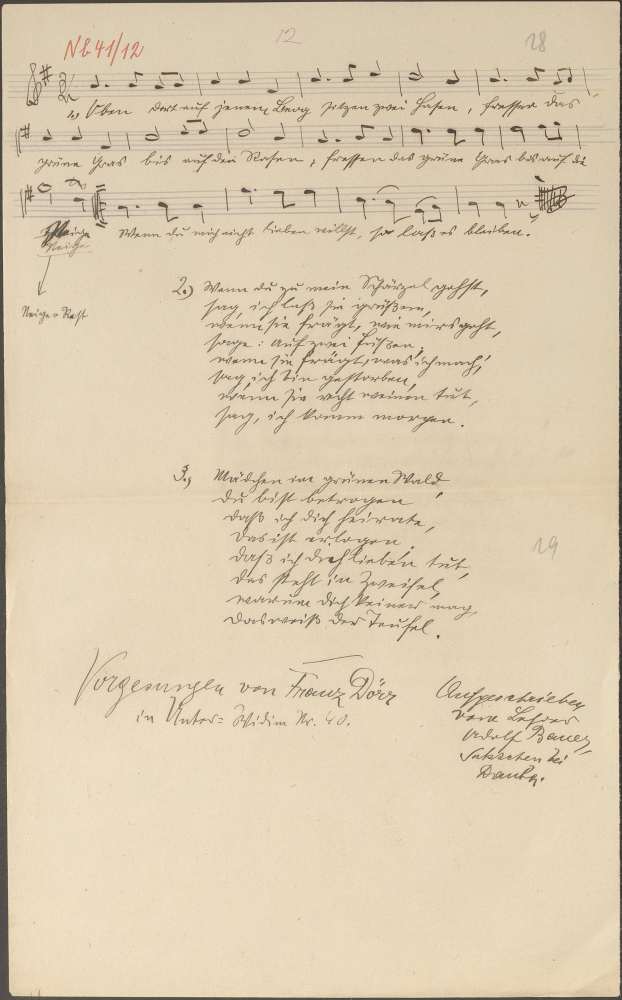 Nb 41/12
12
28
1, Oben dort auf jenem Berg sitzen zwei Hasen, fressen das
grüne Gras bis auf den Rasen, fressen das grüne Gras bis auf die
Neige
Neige Wenn du mich nicht lieben willst, so laß es bleiben.
Neige = Rest
2.) Wenn du zu mein Schätzel gehst,
sag, ich laß sie grüßen,
wenn sie frägt, wie mirs geht,
sage: auf zwei Füßen,
wenn sie frägt, was ich mach',
sag, ich bin gestorben,
wenn sie recht weinen tut,
sag, ich komm morgen.
3., Mädchen im grünen Wald
du bist betrogen
daß ich dich heirate,
das ist erlogen.
daß ich dich lieben tut,
das steht in Zweifel,
warum dich keiner mag,
das weiß der Teufel.
19
Vorgesungen von Franz Dörr
in Unter= Widim Nr. 40.
Aufgeschrieben
vom Lehrer
Adolf Bauer,
bei
Dauba.